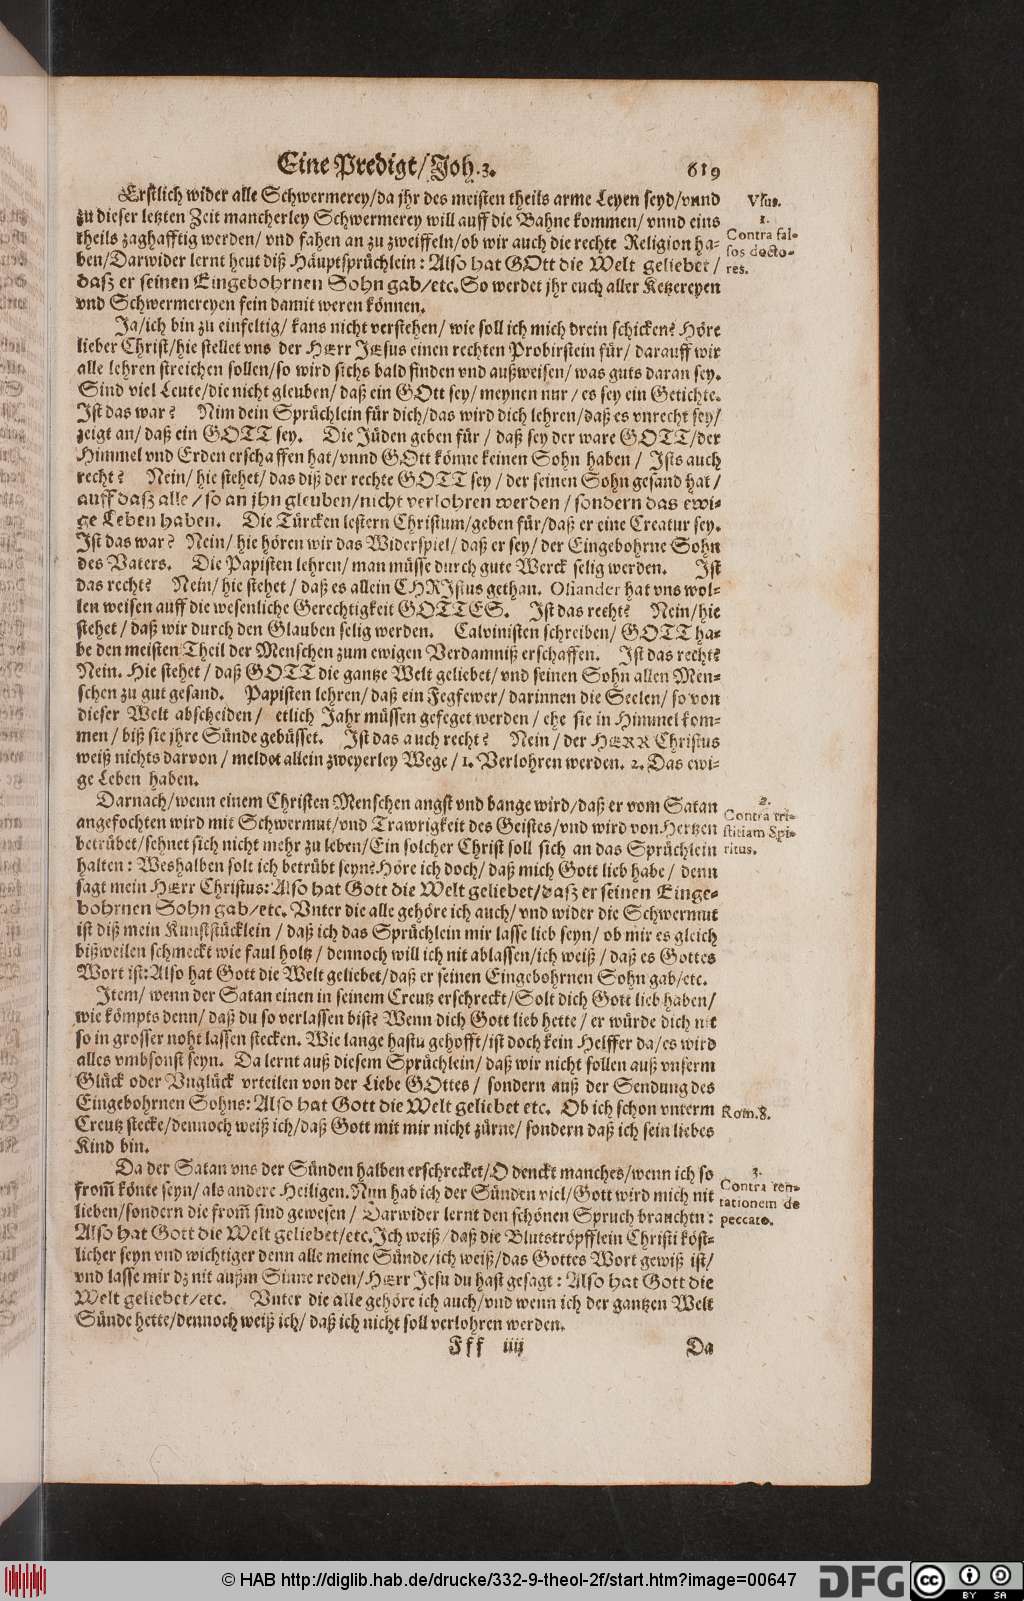 Eine Predigt/ Joh. 3. 619
Erstlich wider alle Schwermerey/da jhr des meisten theils arme Leyen seyd/vnnd
zu dieser letzten Zeit mancherley Schwermerey will auff die Bahne kommen/ vnnd eins
theils zaghafftig werden/ vnd fahen an zu zweiffeln/ob wir auch die rechte Religion ha-
ben/Darwider lernt heut diß Häuptsprüchlein: Also hat GOtt die Welt geliebet/
daß er seinen Eingebohrnen Sohn gab/etc. So werdet jhr euch aller Ketzereyen
vnd Schwermereyen fein damit weren können.
Vsus.
1.
Contra fal-
sos docto-
res.
Ja/ich bin zu einfeltig/ kans nicht verstehen/ wie soll ich mich drein schicken? Höre
lieber Christ/hie stellet vns der HErr JEsus einen rechten Probirstein für/ darauff wir
alle lehren streichen sollen/so wird sichs bald finden vnd außweisen/ was guts daran sey.
Sind viel Leute/die nicht gleuben/ daß ein GOtt sey/ meynen nur/ es sey ein Getichte.
Ist das war? Nim dein Sprüchlein für dich/das wird dich lehren/daß es vnrecht sey/
zeigt an/ daß ein GOTT sey. Die Jüden geben für/ daß sey der ware GOTT/der
Himmel vnd Erden erschaffen hat/vnnd GOtt könne keinen Sohn haben/ Ists auch
recht? Nein/ hie stehet/ das diß der rechte GOTT sey/ der seinen Sohn gesand hat/
auff daß alle/ so an jhn gleuben/nicht verlohren werden/ sondern das ewi-
ge Leben haben. Die Türcken lestern Christum/geben für/daß er eine Creatur sey.
Ist das war? Nein/ hie hören wir das Widerspiel/ daß er sey/ der Eingebohrne Sohn
des Vaters. Die Papisten lehren/ man müsse durch gute Werck selig werden. Ist
das recht? Nein/ hie stehet/ daß es allein CHRIstus gethan. Osiander hat vns wol-
len weisen auff die wesenliche Gerechtigkeit GOTTES. Ist das recht? Nein/hie
stehet/ daß wir durch den Glauben selig werden. Calvinisten schreiben/ GOTT ha-
be den meisten Theil der Menschen zum ewigen Verdamniß erschaffen. Ist das recht?
Nein. Hie stehet/ daß GOTT die gantze Welt geliebet/ vnd seinen Sohn allen Men-
schen zu gut gesand. Papisten lehren/ daß ein Fegfewer/ darinnen die Seelen/ so von
dieser Welt abscheiden/ etlich Jahr müssen gefeget werden/ ehe sie in Himmel kom-
men/ biß sie jhre Sünde gebüsset. Ist das auch recht? Nein/ der HERR Christus
weiß nichts darvon/ meldet allein zweyerley Wege/ 1. Verlohren werden. 2. Das ewi-
ge Leben haben.
Darnach/wenn einem Christen Menschen angst vnd bange wird/daß er vom Satan
angefochten wird mit Schwermut/vnd Trawrigkeit des Geistes/vnd wird von Hertzen
betrübet/sehnet sich nicht mehr zu leben/Ein solcher Christ soll sich an das Sprüchlein
halten: Weshalben solt ich betrübt seyn? Höre ich doch/ daß mich Gott lieb habe/ denn
sagt mein HErr Christus: Also hat Gott die Welt geliebet/daß er seinen Einge-
bohrnen Sohn gab/etc. Vnter die alle gehöre ich auch/ vnd wider die Schwermut
ist diß mein Kunststücklein/ daß ich das Sprüchlein mir lasse lieb seyn/ ob mir es gleich
bißweilen schmeckt wie faul holtz/ dennoch will ich nit ablassen/ich weiß/ daß es Gottes
Wort ist: Also hat Gott die Welt geliebet/daß er seinen Eingebohrnen Sohn gab/etc.
2.
Contra tri-
stitiam Spi-
ritus.
Item/ wenn der Satan einen in seinem Creutz erschreckt/Solt dich Gott lieb haben/
wie kömpts denn/ daß du so verlassen bist? Wenn dich Gott lieb hette/ er würde dich nit
so in grosser noht lassen stecken. Wie lange hastu gehofft/ist doch kein Helffer da/es wird
alles vmbsonst seyn. Da lernt auß diesem Sprüchlein/ daß wir nicht sollen auß vnserm
Glück oder Vnglück vrteilen von der Liebe GOttes/ sondern auß der Sendung des
Eingebohrnen Sohns: Also hat Gott die Welt geliebet etc. Ob ich schon vnterm
Creutz stecke/dennoch weiß ich/daß Gott mit mir nicht zürne/ sondern daß ich sein liebes
Kind bin.
Rom. 8.
Da der Satan vns der Sünden halben erschrecket/O denckt manches/wenn ich so
from̃ könte seyn/ als andere Heiligen. Nun hab ich der Sünden viel/Gott wird mich nit
lieben/sondern die from̃ sind gewesen/ Darwider lernt den schönen Spruch brauchtn:
Also hat Gott die Welt geliebet/etc. Ich weiß/daß die Blutströpfflein Christi köst-
licher seyn vnd wichtiger denn alle meine Sünde/ich weiß/das Gottes Wort gewiß ist/
vnd lasse mir dz nit außm Sinne reden/HErr Jesu du hast gesagt: Also hat Gott die
Welt geliebet/etc. Vnter die alle gehöre ich auch/vnd wenn ich der gantzen Welt
Sünde hette/dennoch weiß ich/ daß ich nicht soll verlohren werden.
3.
Contra ten-
tationem de
peccato.
Fff iiij Da
© HAB http://diglib.hab.de/drucke/332-9-theol-2f/start.htm?image=00647
DFG
cc
BY SA